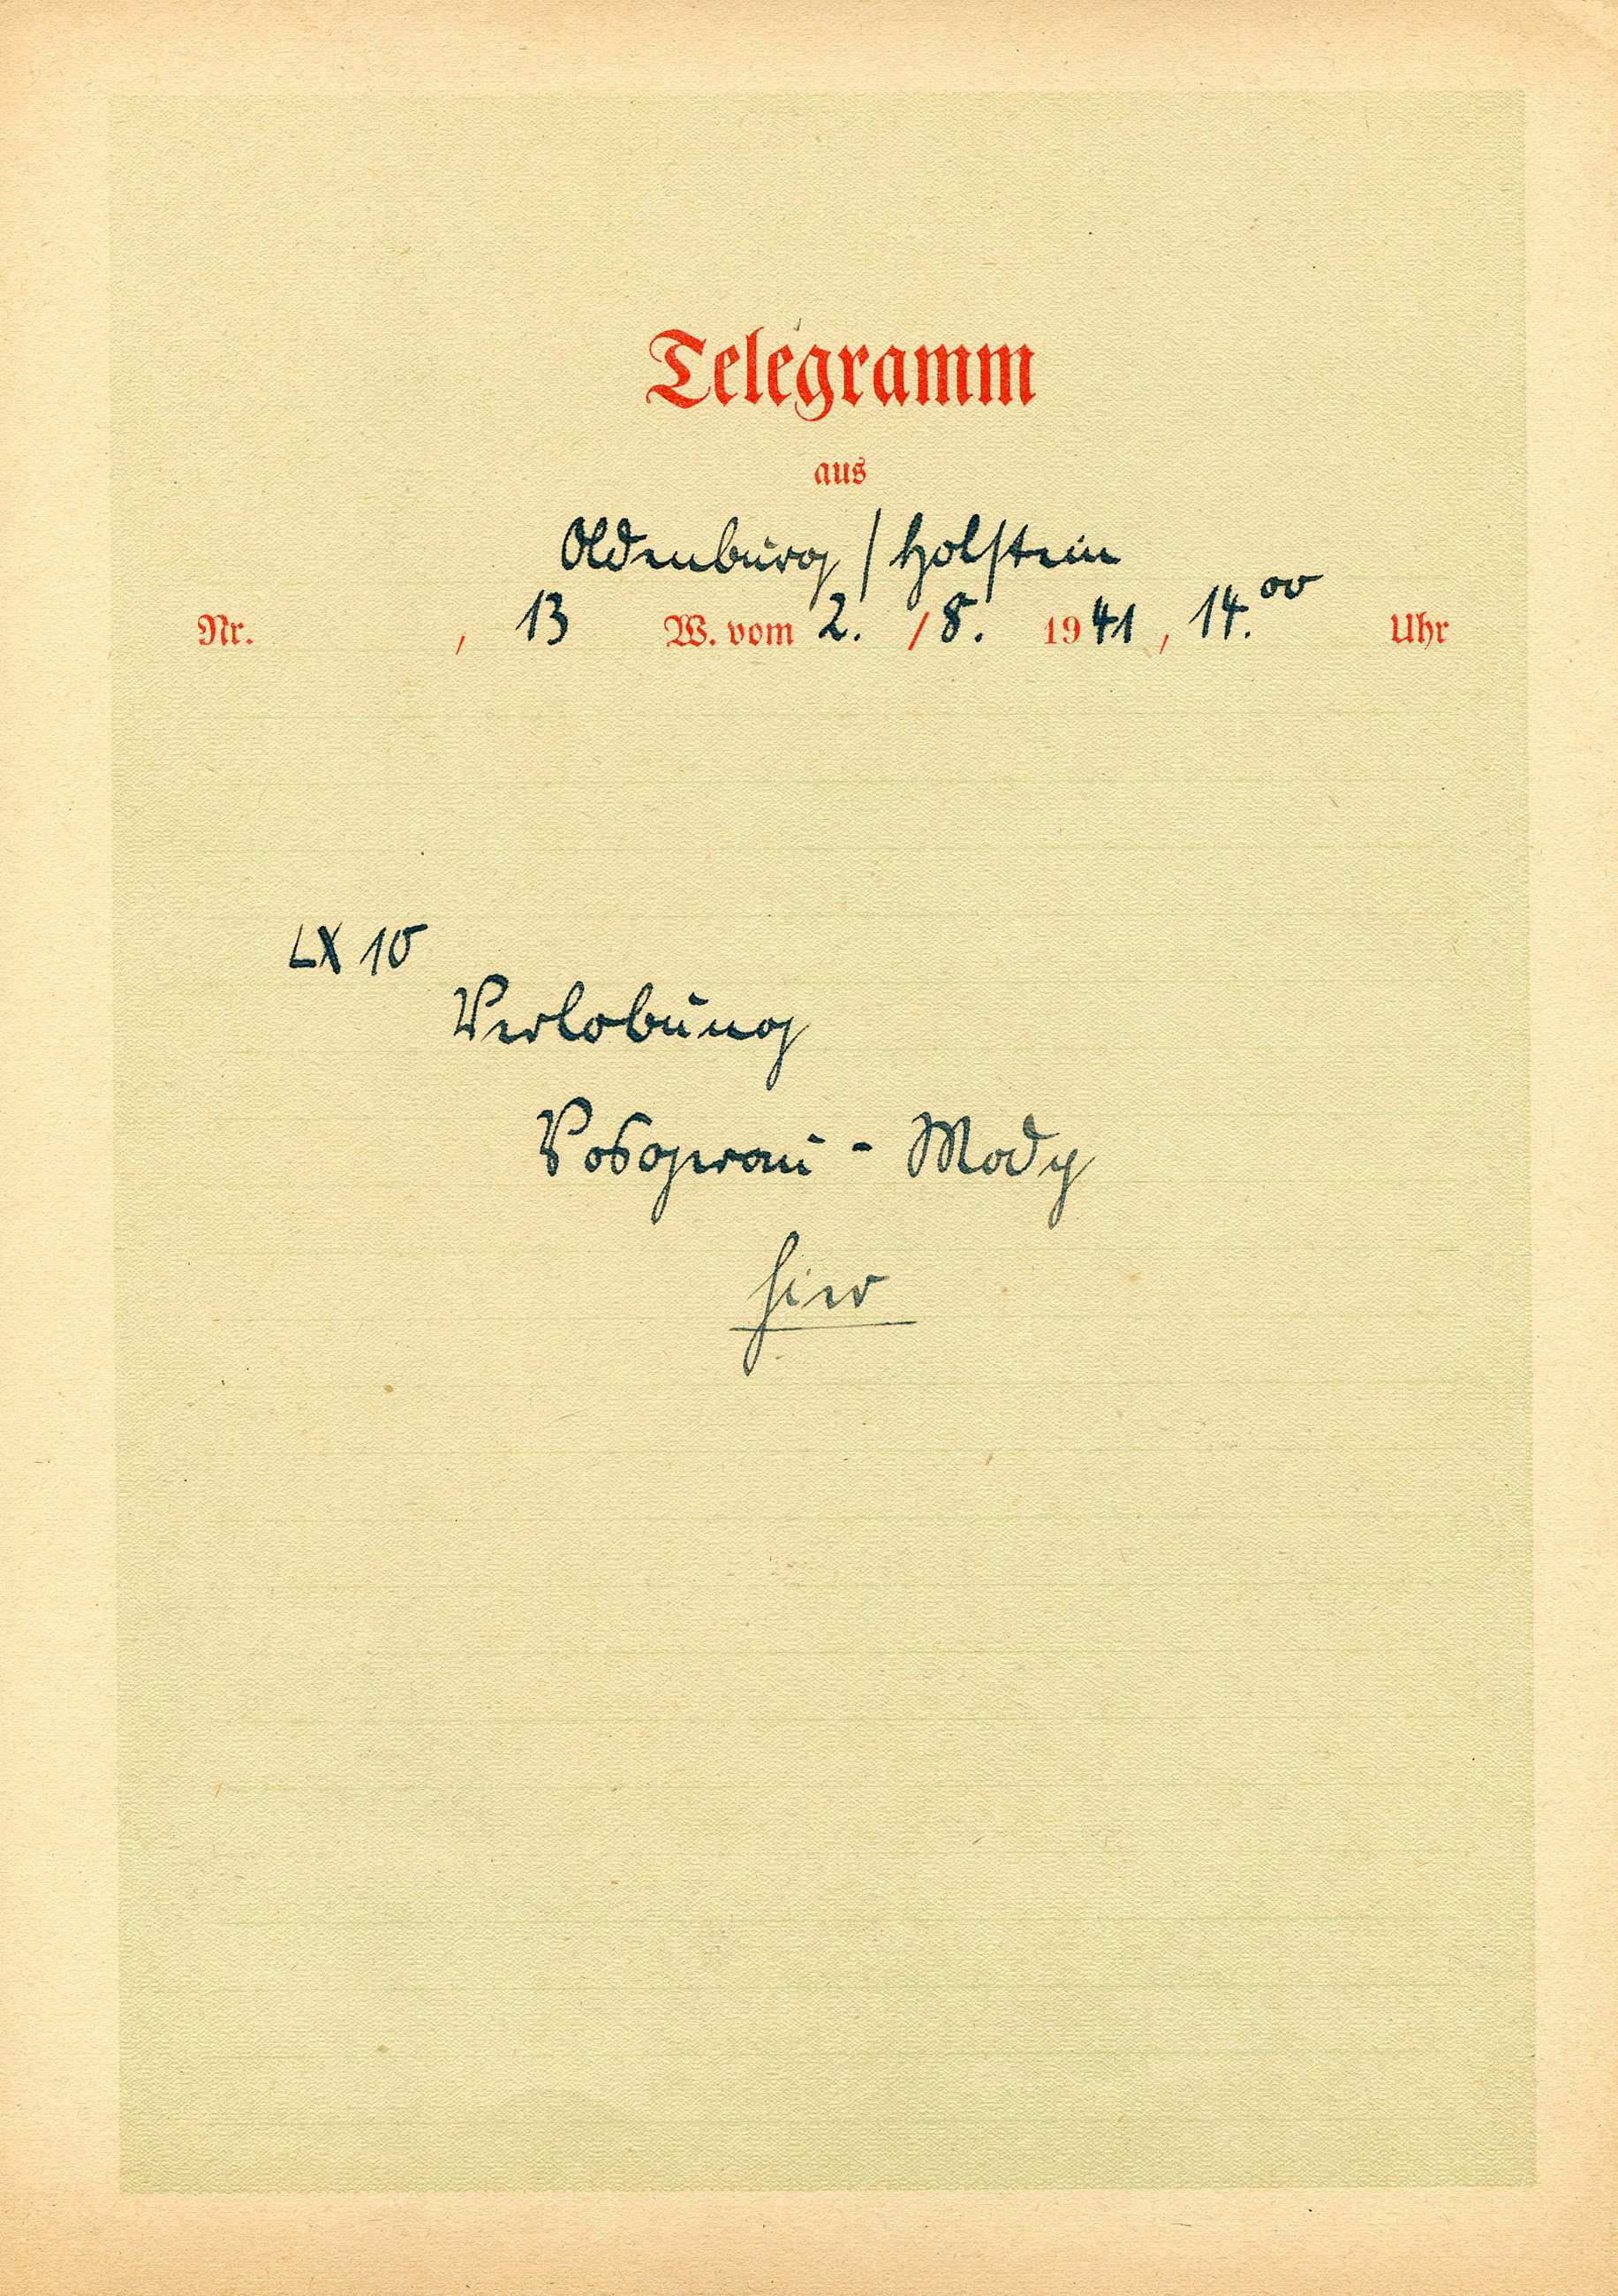 Telegramm
aus
Oldenburg / Holstein
Nr. , 13 W. vom 2. / 8. 1941, 14.00 Uhr
LX 10
Verlobung
Vosgerau - Mody
hier